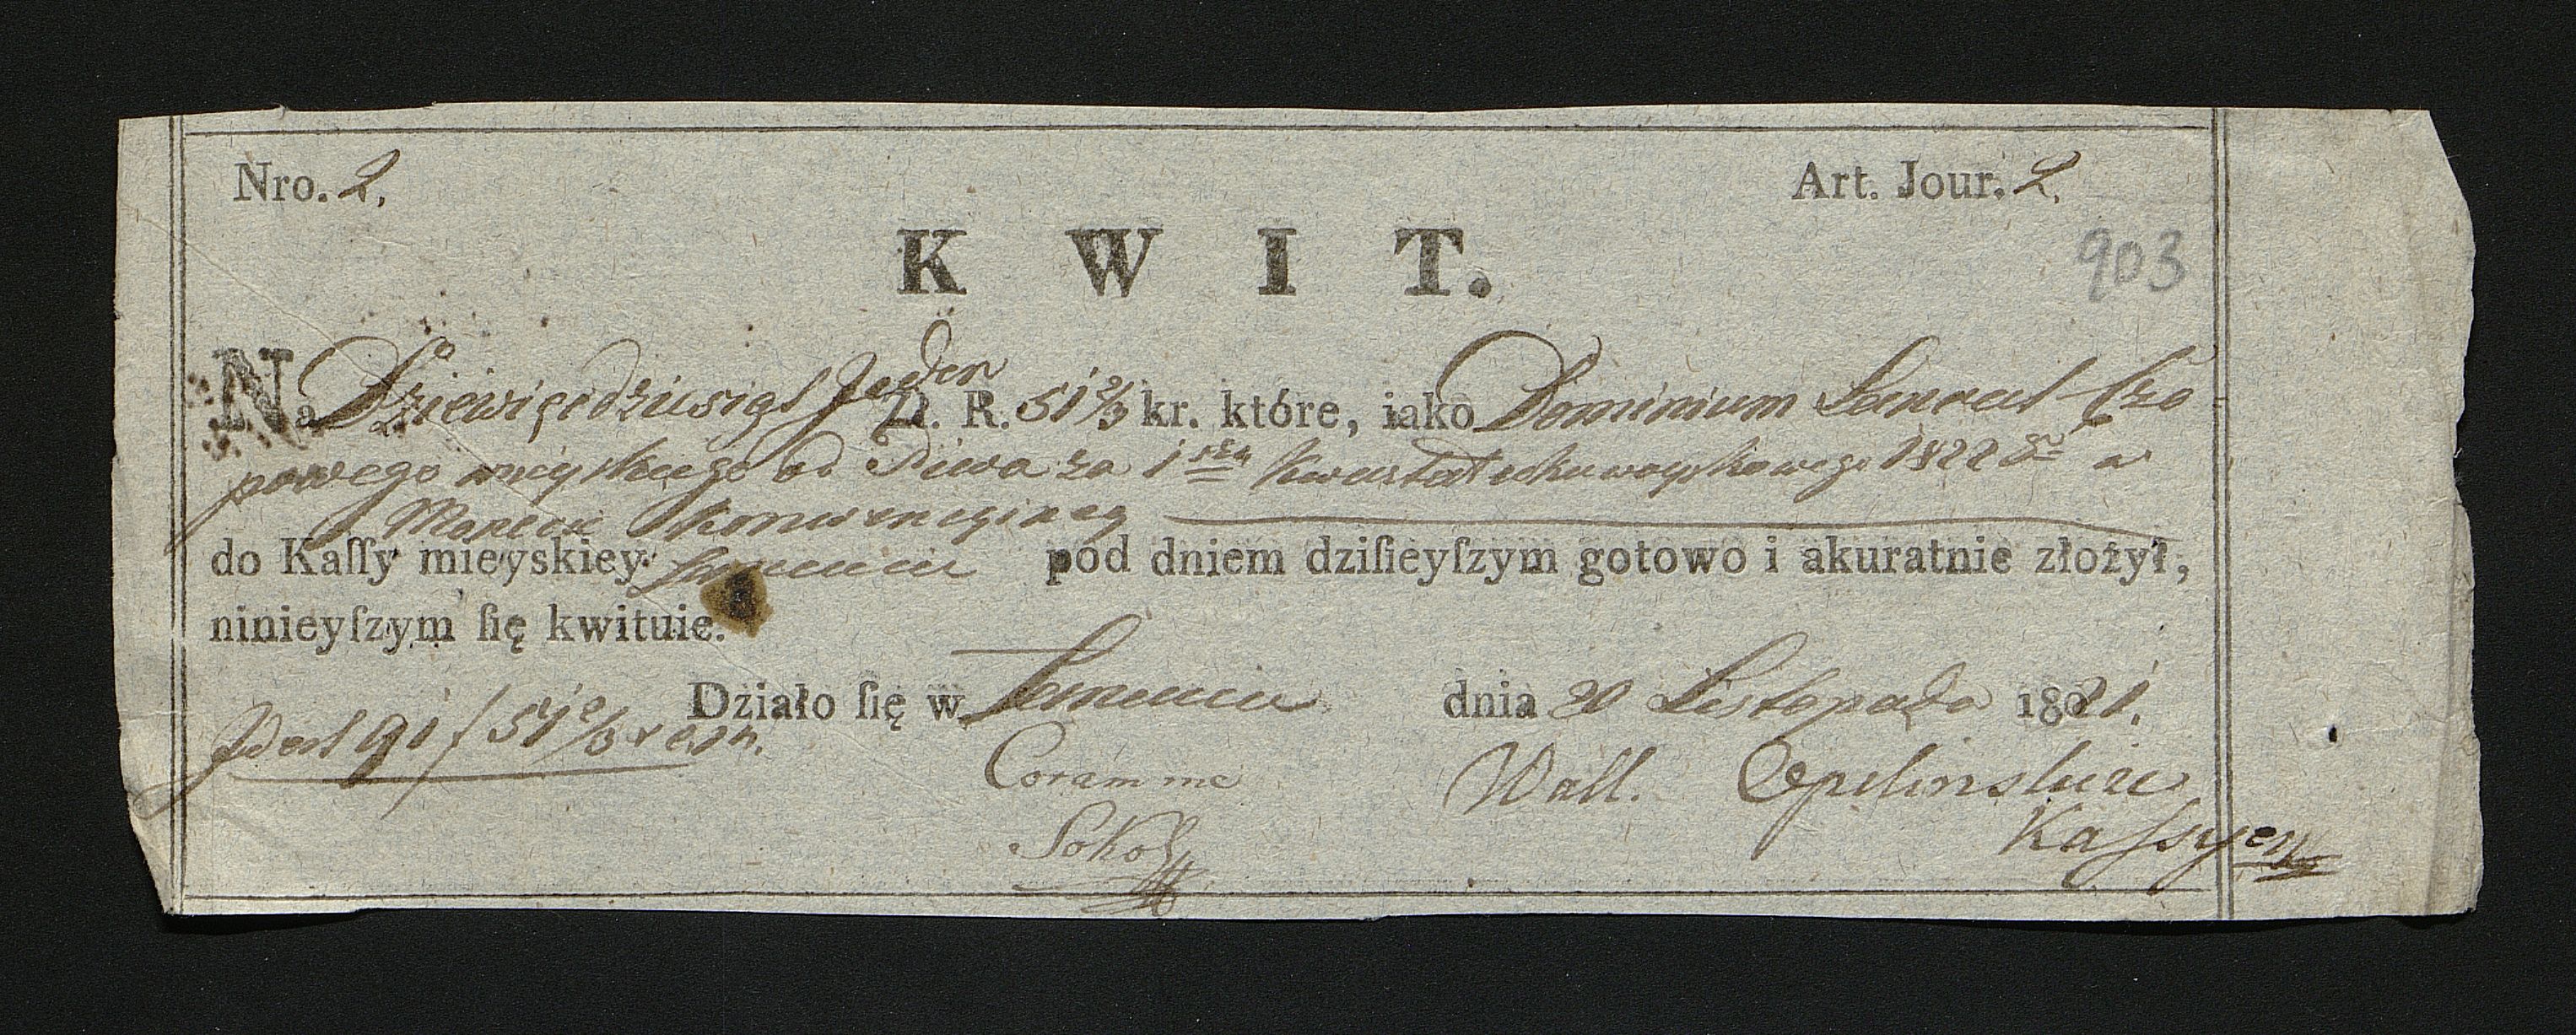 Nro. 2. Art. Jour. 2.
903
K W I T.
Na Dziewięćdziesiąt Jeden D. R. 51 2/3 kr. które, iako Dominium Czo
powego mieyskiego od Piwa za 1 Kwartał woyskowego 1822 w
Monecie konwencyiney
do Kaſſy mieyskiey pod dniem dziſieyſzym gotowo i akuratnie złożył,
ninieyſzym ſię kwituie.
Działo ſię w dnia 20 Listopada 1821.
91 f 51 2/3 x
Coram me
Wall.
Sokol
Kaſsyer